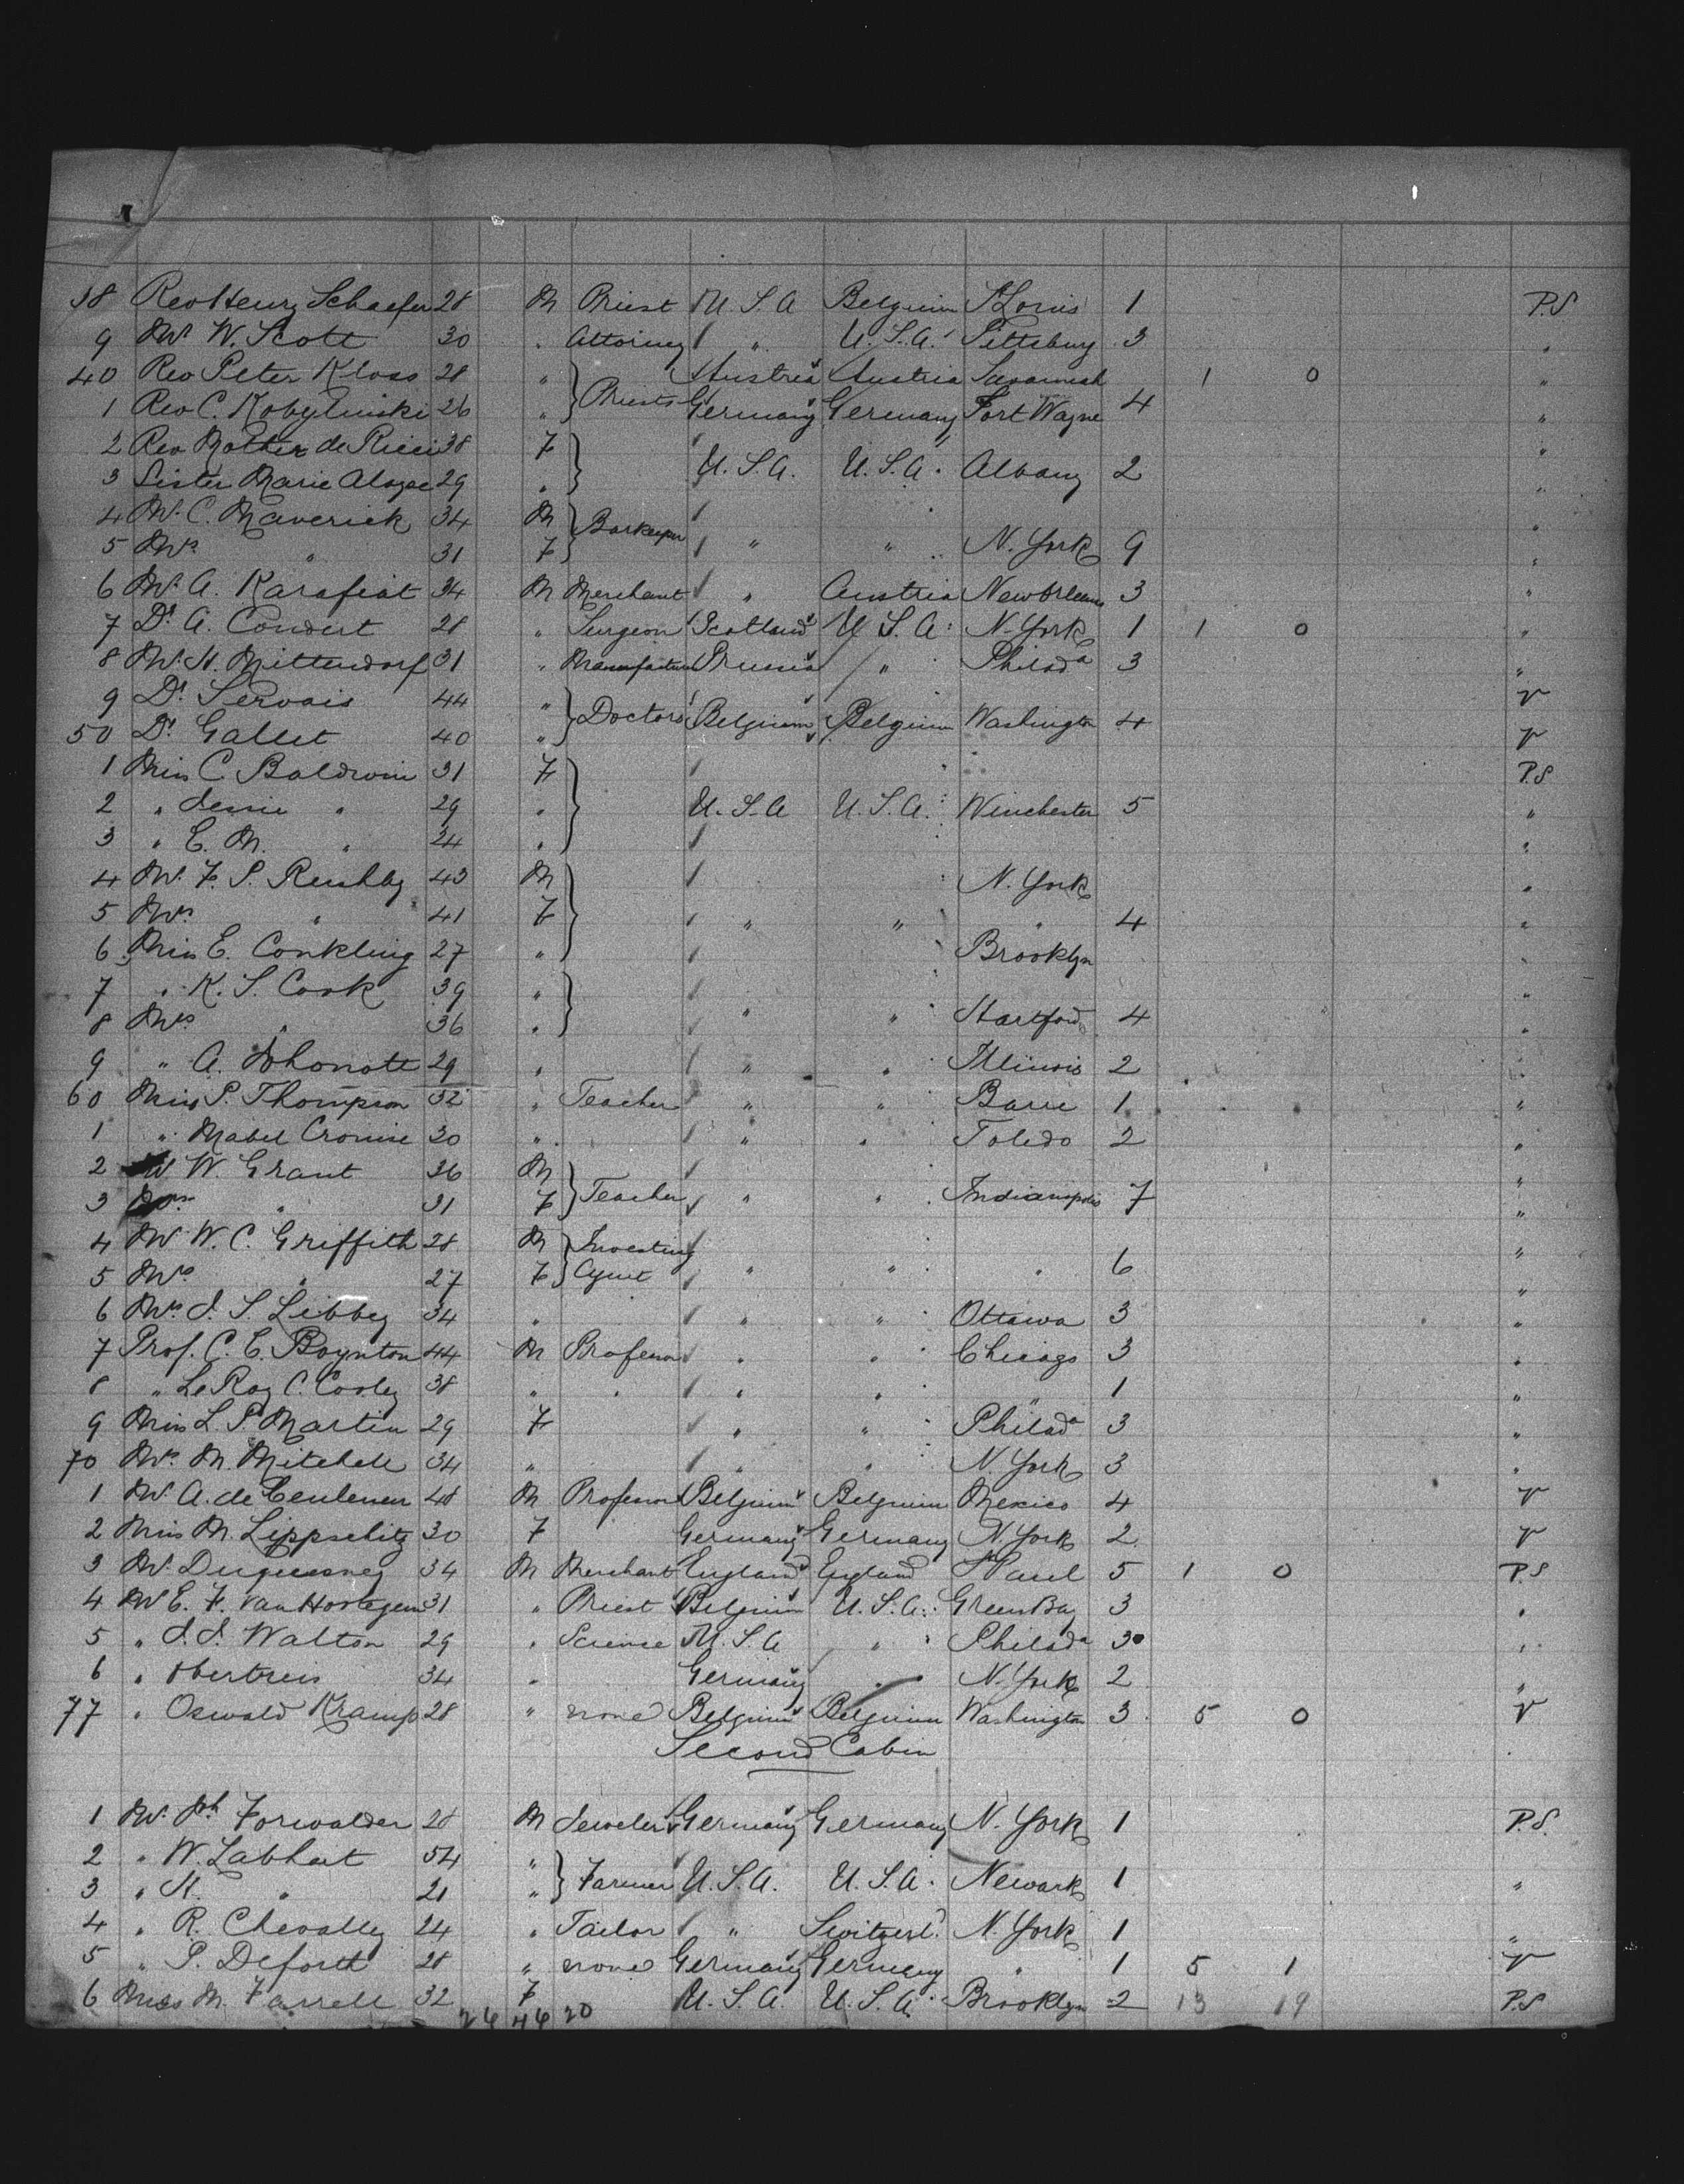 38 Rev Henry Schaefer 28 M Priest U.S.A Belgium St Louis 1 P.S
9 Mr W. Scott 30 " Attorney " U.S.A. Pittsburg 3 "
40 Rev Peter Kloss 28 " Austria Austria Savannah 1 0 "
1 Rev C. Kobylinski 26 " Priests Germany Germany Fort Wayne 4 "
2 Rev Mother de Ricci 38 F "
3 Sister Marie 29 " U.S.A. U.S.A. Albany 2 "
4 Mr C. Maverick 34 M Barkeeper "
5 Mrs " 31 F " " N. York 9 "
6 Mr A. Karafiat 34 M Merchant " Austria New Orleans 3 "
7 Dr A. Condert 28 " Surgeon Scotland U.S.A. N. York 1 1 0 "
8 Mr H. Mittendorf 31 " Manufacturer Prussia " Philada 3 "
9 Dr Servais 44 " V
50 Dr Gallet 40 " Doctors Belgium Belgium Washington 4 V
1 Miss C. Baldwin 31 F P.S
2 " Jessie " 29 " U.S.A U.S.A. Winchester 5 "
3 " E. M. " 24 " "
4 Mr F. S. 43 M N. York "
5 Mrs " 41 F " " " 4 "
6 Miss E. Conkling 27 " Brooklyn
7 " K. S. Cook 39 " "
8 Mrs " 36 " " " Hartford 4 "
9 " A. 29 " " " Illinois 2 "
60 Miss S. Thompson 32 " Teacher " " Barre 1 "
1 " Mabel Cronise 30 " " " Toledo 2 "
2 Mr W. Grant 36 M "
3 Mrs " 31 F Teacher " " Indianapolis 7 "
4 Mr W. C. Griffith 28 M Investing "
5 Mrs " 27 F Agent " " " 6 "
6 Mrs J. S. Libbey 34 " " " Ottawa 3 "
7 Prof. C. E. Boynton 44 M Professor " " Chicago 3 "
8 " LeRoy C. Cooley 38 " " " " " 1 "
9 Miss L. P. Martin 29 F " " Philada 3 "
70 Mrs M. Mitchell 34 " " " N. York 3 "
1 Mr A. de Ceuleneer 48 M Professor Belgium Belgium Mexico 4 V
2 Miss M. Lippschitz 30 F Germany Germany N. York 2 V
3 Mr Duquesney 34 M Merchant England England St Paul 5 1 0 P.S
4 Mr E. F. 31 " Priest Belgium U.S.A. Green Bay 3 "
5 " J. J. Walton 29 " Science U.S.A " Philada 3 "
6 " Obertreis 34 " Germany " N. York 2 "
77 " Oswald Kramp 28 " none Belgium Belgium Washington 3 5 0 V
Second Cabin
1 Mr Forwalder 28 M Jeweler Germany Germany N. York 1 P.S.
2 " W. Labhart 54 "
3 " H. " 21 " Farmer U.S.A. U.S.A. Newark 1 "
4 " R. Chevalley 24 " Tailor " Switzerld. N. York 1 "
5 " P. Deforth 28 " none Germany Germany " 1 5 1 V
6 Miss M. Farrell 32 F U.S.A. U.S.A. Brooklyn 2 13 19 P.S
26 46 20